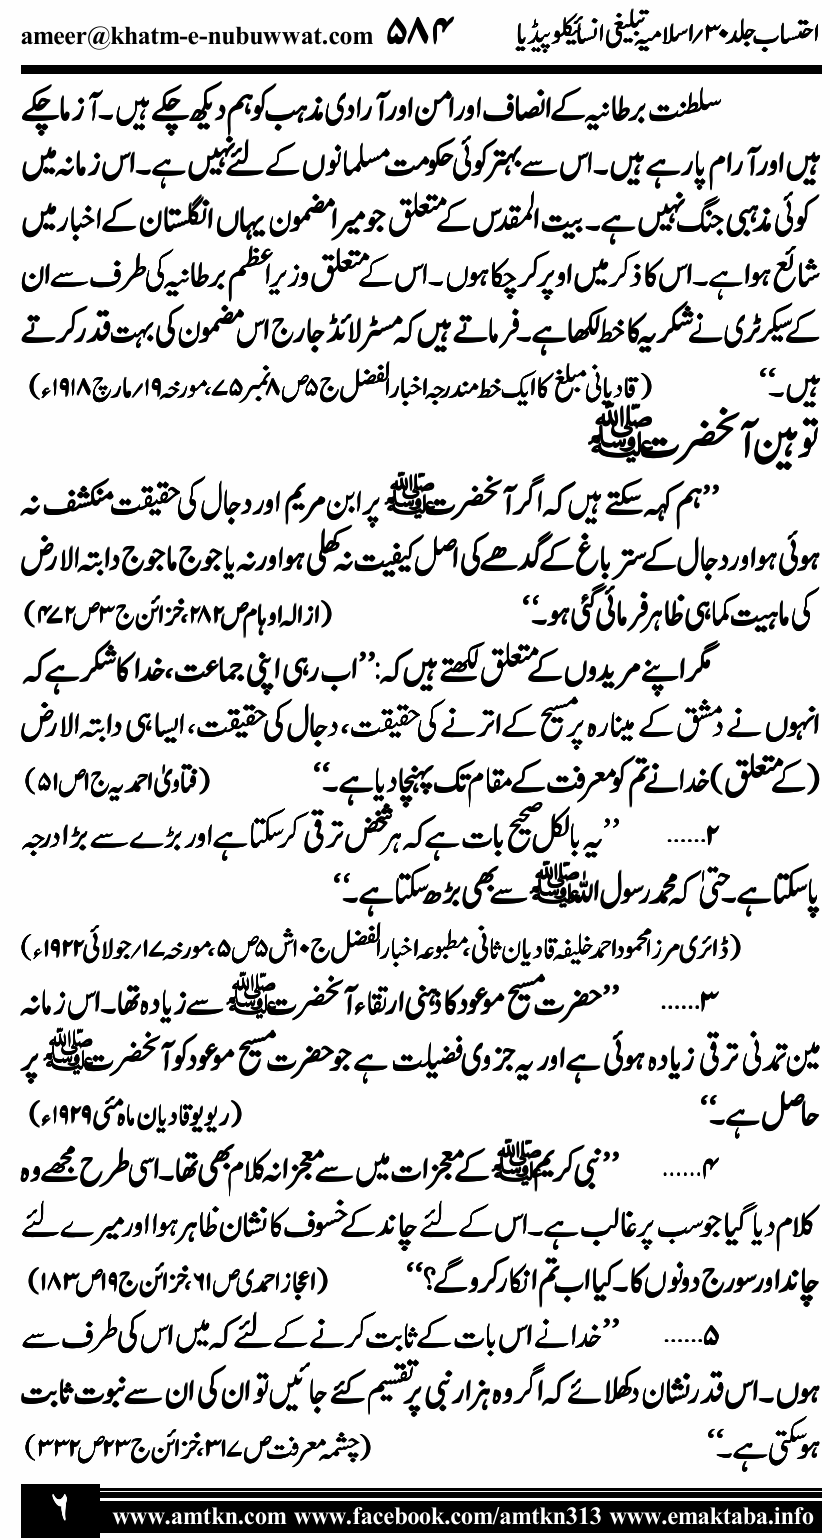 احتساب جلد ۳۰/اسلامیہ تبلیغی انسائیکلوپیڈیا ۵۸۴ ameer@khatm-e-nubuwwat.com
سلطنت برطانیہ کے انصاف اور امن اور آرادی مذہب کو ہم دیکھ چکے ہیں۔ آزما چکے
ہیں اور آرام پا رہے ہیں۔ اس سے بہتر کوئی حکومت مسلمانوں کے لئے نہیں ہے۔ اس زمانہ میں
کوئی مذہبی جنگ نہیں ہے۔ بیت المقدس کے متعلق جو میرا مضمون یہاں انگلستان کے اخبار میں
شائع ہوا ہے۔ اس کا ذکر میں اوپر کر چکا ہوں۔ اس کے متعلق وزیراعظم برطانیہ کی طرف سے ان
کے سیکرٹری نے شکریہ کا خط لکھا ہے۔ فرماتے ہیں کہ مسٹر لائڈ جارج اس مضمون کی بہت قدر کرتے
ہیں۔‘‘ (قادیانی مبلغ کا ایک خط مندرجہ اخبار الفضل ج۵ص۸نمبر۷۵، مورخہ ۱۹/مارچ ۱۹۱۸ء)
توہین آنحضرتﷺ
’’ہم کہہ سکتے ہیں کہ اگر آنحضرتﷺ پر ابن مریم اور دجال کی حقیقت منکشف نہ
ہوئی ہو اور دجال کے ستر باغ کے گدھے کی اصل کیفیت نہ کھلی ہو اور نہ یاجوج ماجوج دابتہ الارض
کی ماہیت کماہی ظاہر فرمائی گئی ہو۔‘‘ (ازالہ اوہام ص۲۸۲، خزائن ج۳ص۴۷۲)
مگر اپنے مریدوں کے متعلق لکھتے ہیں کہ: ’’اب رہی اپنی جماعت، خدا کا شکر ہے کہ
انہوں نے دمشق کے مینارہ پر مسیح کے اترنے کی حقیقت، دجال کی حقیقت، ایسا ہی دابتہ الارض
(کے متعلق) خدا نے تم کو معرفت کے مقام تک پہنچا دیا ہے۔‘‘ (فتاویٰ احمدیہ ج۱ص۵۱)
۲...... ’’یہ بالکل صحیح بات ہے کہ ہر شخص ترقی کر سکتا ہے اور بڑے سے بڑا درجہ
پا سکتا ہے۔ حتیٰ کہ محمد رسول اللہﷺ سے بھی بڑھ سکتا ہے۔‘‘
(ڈائری مرزا محمود احمد خلیفہ قادیان ثانی، مطبوعہ اخبار الفضل ج۱۰ش۵ص۵، مورخہ ۱۷/جولائی ۱۹۲۲ء)
۳...... ’’حضرت مسیح موعود کا ذہنی ارتقاء آنحضرتﷺ سے زیادہ تھا۔ اس زمانہ
مین تمدنی ترقی زیادہ ہوئی ہے اور یہ جزوی فضیلت ہے جو حضرت مسیح موعود کو آنحضرتﷺ پر
حاصل ہے۔‘‘ (ریویو قادیان ماہ مئی ۱۹۲۹ء)
۴...... ’’نبی کریمﷺ کے معجزات میں سے معجزانہ کلام بھی تھا۔ اسی طرح مجھے وہ
کلام دیا گیا جو سب پر غالب ہے۔ اس کے لئے چاند کے خسوف کا نشان ظاہر ہوا اور میرے لئے
چاند اور سورج دونوں کا۔ کیا اب تم انکار کرو گے؟‘‘ (اعجاز احمدی ص۶۱، خزائن ج۱۹ص۱۸۳)
۵...... ’’خدا نے اس بات کے ثابت کرنے کے لئے کہ میں اس کی طرف سے
ہوں۔ اس قدر نشان دکھلائے کہ اگر وہ ہزار نبی پر تقسیم کئے جائیں تو ان کی ان سے نبوت ثابت
ہو سکتی ہے۔‘‘ (چشمہ معرفت ص۳۱۷، خزائن ج۲۳ص۳۳۲)
۶ www.amtkn.com www.facebook.com/amtkn313 www.emaktaba.info